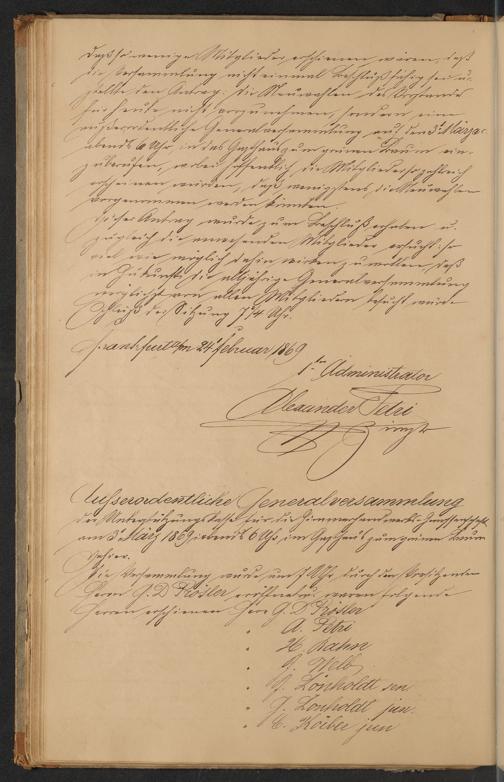 daß so wenige Mitglieder erschienen wären, daß
die Versammlung nicht einmal beschlußfähig sei u.
stellte den Antrag, die Neuwahlen des Vorstandes
für heute nicht vorzunehmen, sondern eine
außerordentliche Generalversammlung auf den 3. März
abends 6 Uhr in das Gasthaus zum grünen Baum ein-
zuberufen, wobei hoffentlich die Mitglieder so zahlreich
erscheinen würden, daß wenigstens die Neuwahlen
vorgenommen werden könnten.
Dieser Antrag wurde zum Beschluß erhoben u.
zugleich die anwesenden Mitglieder ersucht so
viel wie möglich dahin wirken zu wollen, daß
in Zukunft die alljährige Generalversammlung
von allen Mitgliedern besucht würde
Schluß der Sitzung 7 3/4 Uhr.
Frankfurt a/m 24t Februar 1869
1ter Administrator
Alexander Petri
Ausserordentliche Generalversammlung
der Unterstützungskasse für die
am 3t März 1869 abends 6 Uhr im Gasthaus zum grünen Baum
dahier.
Die Versammlung wurde um 7 Uhr durch den Vorsitzenden
Herrn G. D. Rösler eröffnet u. waren folgende
Herren erschienen Herr G. D. Rösler
" A. Petri
" H. Rahn
" G. Welb
" J. Lönholdt sen.
" J. Lönholdt jun.
" C. Körber jun